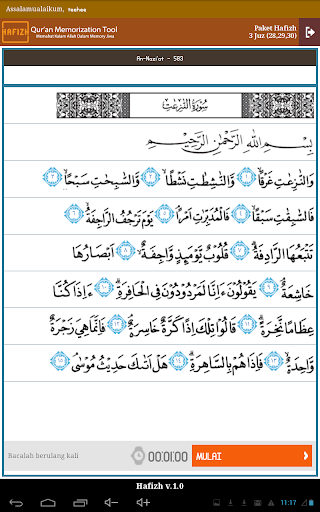 Assalamualaikum, taehee
HAFIZH
Qur'an Memorization Tool
Memahat Kalam Allah Dalam Memory Jiwa
Paket Hafizh
3 Juz (28,29,30)
An-Nazi'at - 583
سُورَةُ النَّازِعَاتِ
بِسْمِ اللَّهِ الرَّحْمَٰنِ الرَّحِيمِ
وَالنَّٰزِعَٰتِ غَرْقًا ۙ ١ وَّالنَّٰشِطَٰتِ نَشْطًا ۙ ٢ وَّالسَّٰبِحَٰتِ سَبْحًا ۙ ٣
فَالسّٰبِقٰتِ سَبْقًا ۙ ٤ فَالْمُدَبِّرٰتِ اَمْرًا ۘ ٥ يَوْمَ تَرْجُفُ الرَّاجِفَةُ ۙ ٦
تَتْبَعُهَا الرَّادِفَةُ ۗ ٧ قُلُوْبٌ يَّوْمَىِٕذٍ وَّاجِفَةٌ ۙ ٨ اَبْصَارُهَا
خَاشِعَةٌ ۘ ٩ يَقُوْلُوْنَ ءَاِنَّا لَمَرْدُوْدُوْنَ فِى الْحَافِرَةِ ۗ ١٠ ءَاِذَا كُنَّا
عِظَامًا نَّخِرَةً ۗ ١١ قَالُوْا تِلْكَ اِذًا كَرَّةٌ خَاسِرَةٌ ۘ ١٢ فَاِنَّمَا هِيَ زَجْرَةٌ
وَّاحِدَةٌ ۙ ١٣ فَاِذَا هُمْ بِالسَّاهِرَةِ ۗ ١٤ هَلْ اَتٰىكَ حَدِيْثُ مُوْسٰى ۘ ١٥
Baralah berulang kali
00:01:00
MULAI
Hafizh v.1.0
11:17